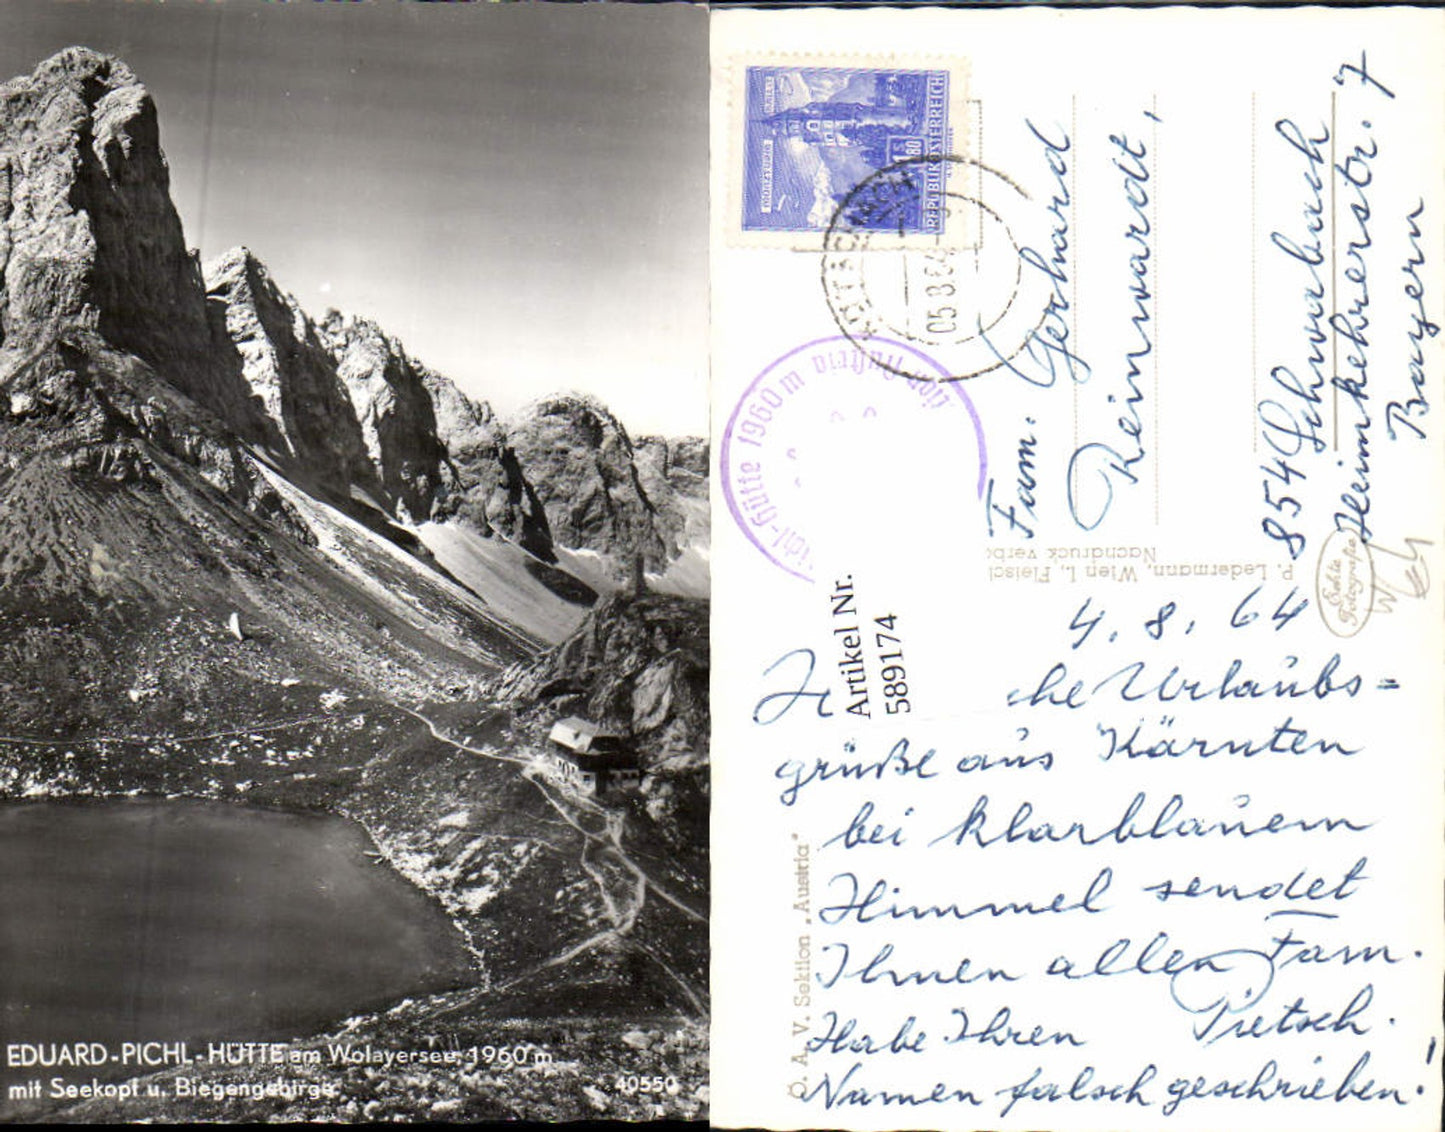 EDUARD-PICHL-HÜTTE am Wolayersee, 1960 m
mit Seekopf u. Biegengebirge
40550
REPUBLIK ÖSTERREICH
S 1.80
KÖTSCHACH
Hütte 1960 m
Austria
Fam. Gerhard
Reinwardt,
854 Schwabach
Heimkehrerstr. 7
Bayern
P. Ledermann, Wien I., Fleisch
Nachdruck verbo
Echte
Fotografie
Artikel Nr.
589174
Ö. A. V. Sektion „Austria"
4. 8. 64
che Urlaubs=
grüße aus Kärnten
bei klarblauem
Himmel sendet
Ihnen allen Fam.
Pietsch.
Habe Ihren
Namen falsch geschrieben!